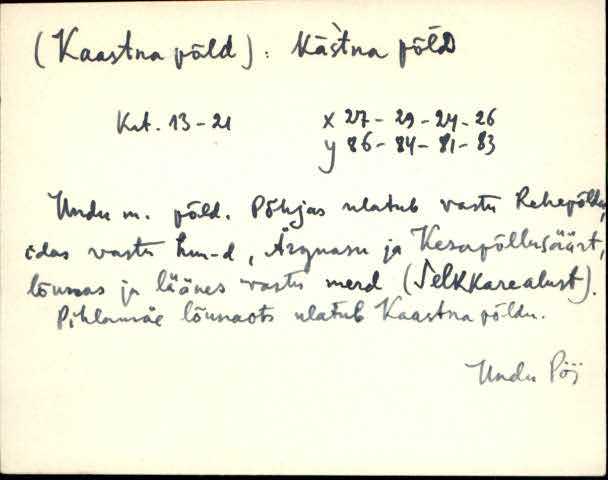 (Kaastna põld): kàstna põlD
Krt. 13-21 x 27-29-24-26
y 86-84-81-83
Undu m. põld. Põhjas ulatub vastu Rehepõldu,
idas vastu hm-d, Ärgnasu ja Kesapõllusäärt,
lõunas ja läänes vastu merd (Selkkarealust).
Pihlamäe lõunaots ulatub Kaastna põldu.
Undu Pöi